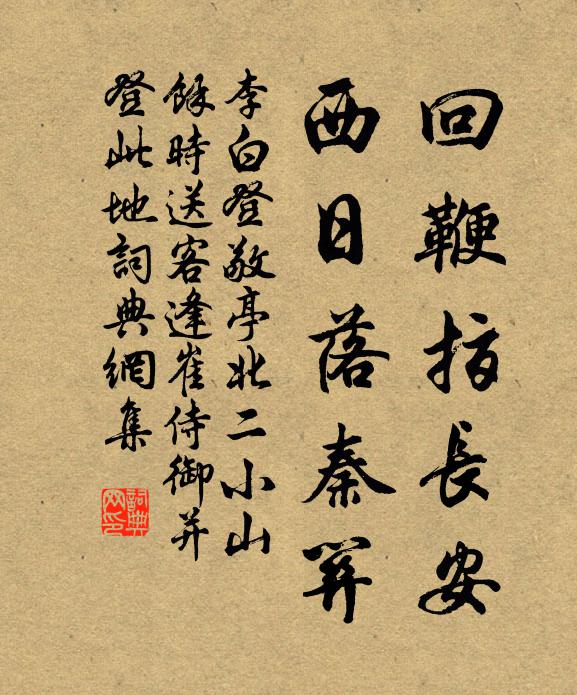 回鞭指長安
西日落秦關
李白登敬亭北二小山
餘時送客逢崔侍御并
登此地詞典網集
詞典
网印